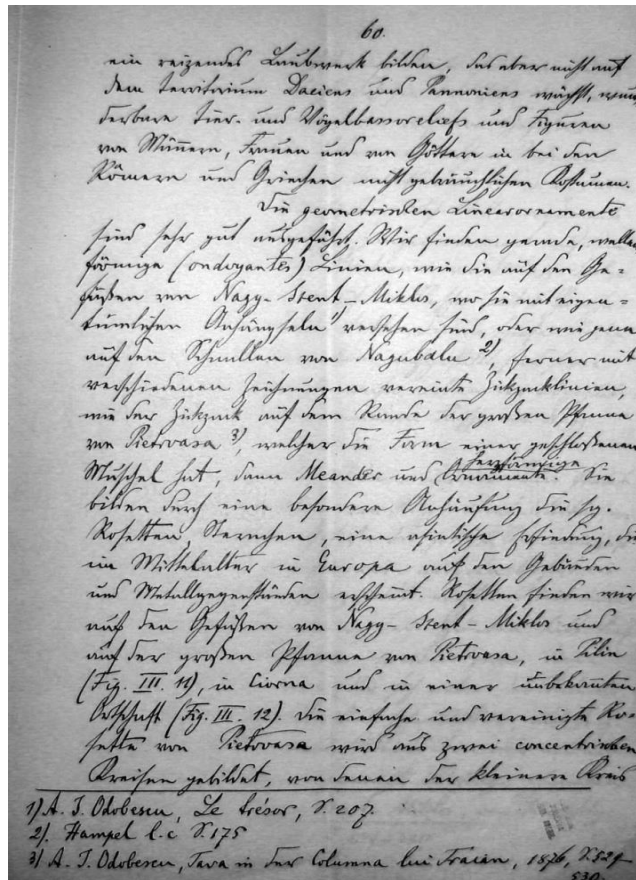 60.
ein reizendes Laubwerk bilden, das aber nicht auf
dem Territorium Daciens und Pannoniens wächst, wun
derbare Tier- und Vögelbassoreliefs und Figuren
von Männern, Frauen und von Göttern in bei den
Römern und Griechen nicht gebräuchlichen Kostumen.
Die geometrischen Linearornamente
sind sehr gut ausgeführt. Wir finden gerade, wellen
förmige (ondoyantes) Linien, wie die auf den Ge=
fäßen von Nagy-Szent-Miklos, wo sie mit eigen=
tümlichen Anhängseln 1) versehen sind, oder wie jene
auf den Schnallen von 2), ferner mit
verschiedenen Zeichnungen vereinte Zickzacklinien,
wie der Zickzack auf dem Rande der großen Pfanne
von Pietroasa 3), welcher die Form einer geschlossenen
Muschel hat, dann Meander und herzförmige Ornamente. Sie
bilden durch eine besondere Anhäufung die sg.
Rosetten Sternchen, eine asiatische Erfindung, die
im Mittelalter in Europa auf den Gebäuden
und Metallgegenständen erscheint. Rosetten finden wir
auf den Gefäßen von Nagy-Szent-Miklos und
auf der großen Pfanne von Pietroasa, in Pilin
(Fig. III. 11), in Ciorna und in einer unbekannten
Ortschaft (Fig. III. 12). Die einfache und vereinigte Ro-
sette von Pietroasa wird aus zwei concentrischen
Kreisen gebildet, von denen der kleinere Kreis
1) A. I. Odobescu, Le trésor, S. 207.
2). Hampel l.c S. 175
3) A. I. Odobescu, in der Columna lui Traian, 1876, S. 529-
530.